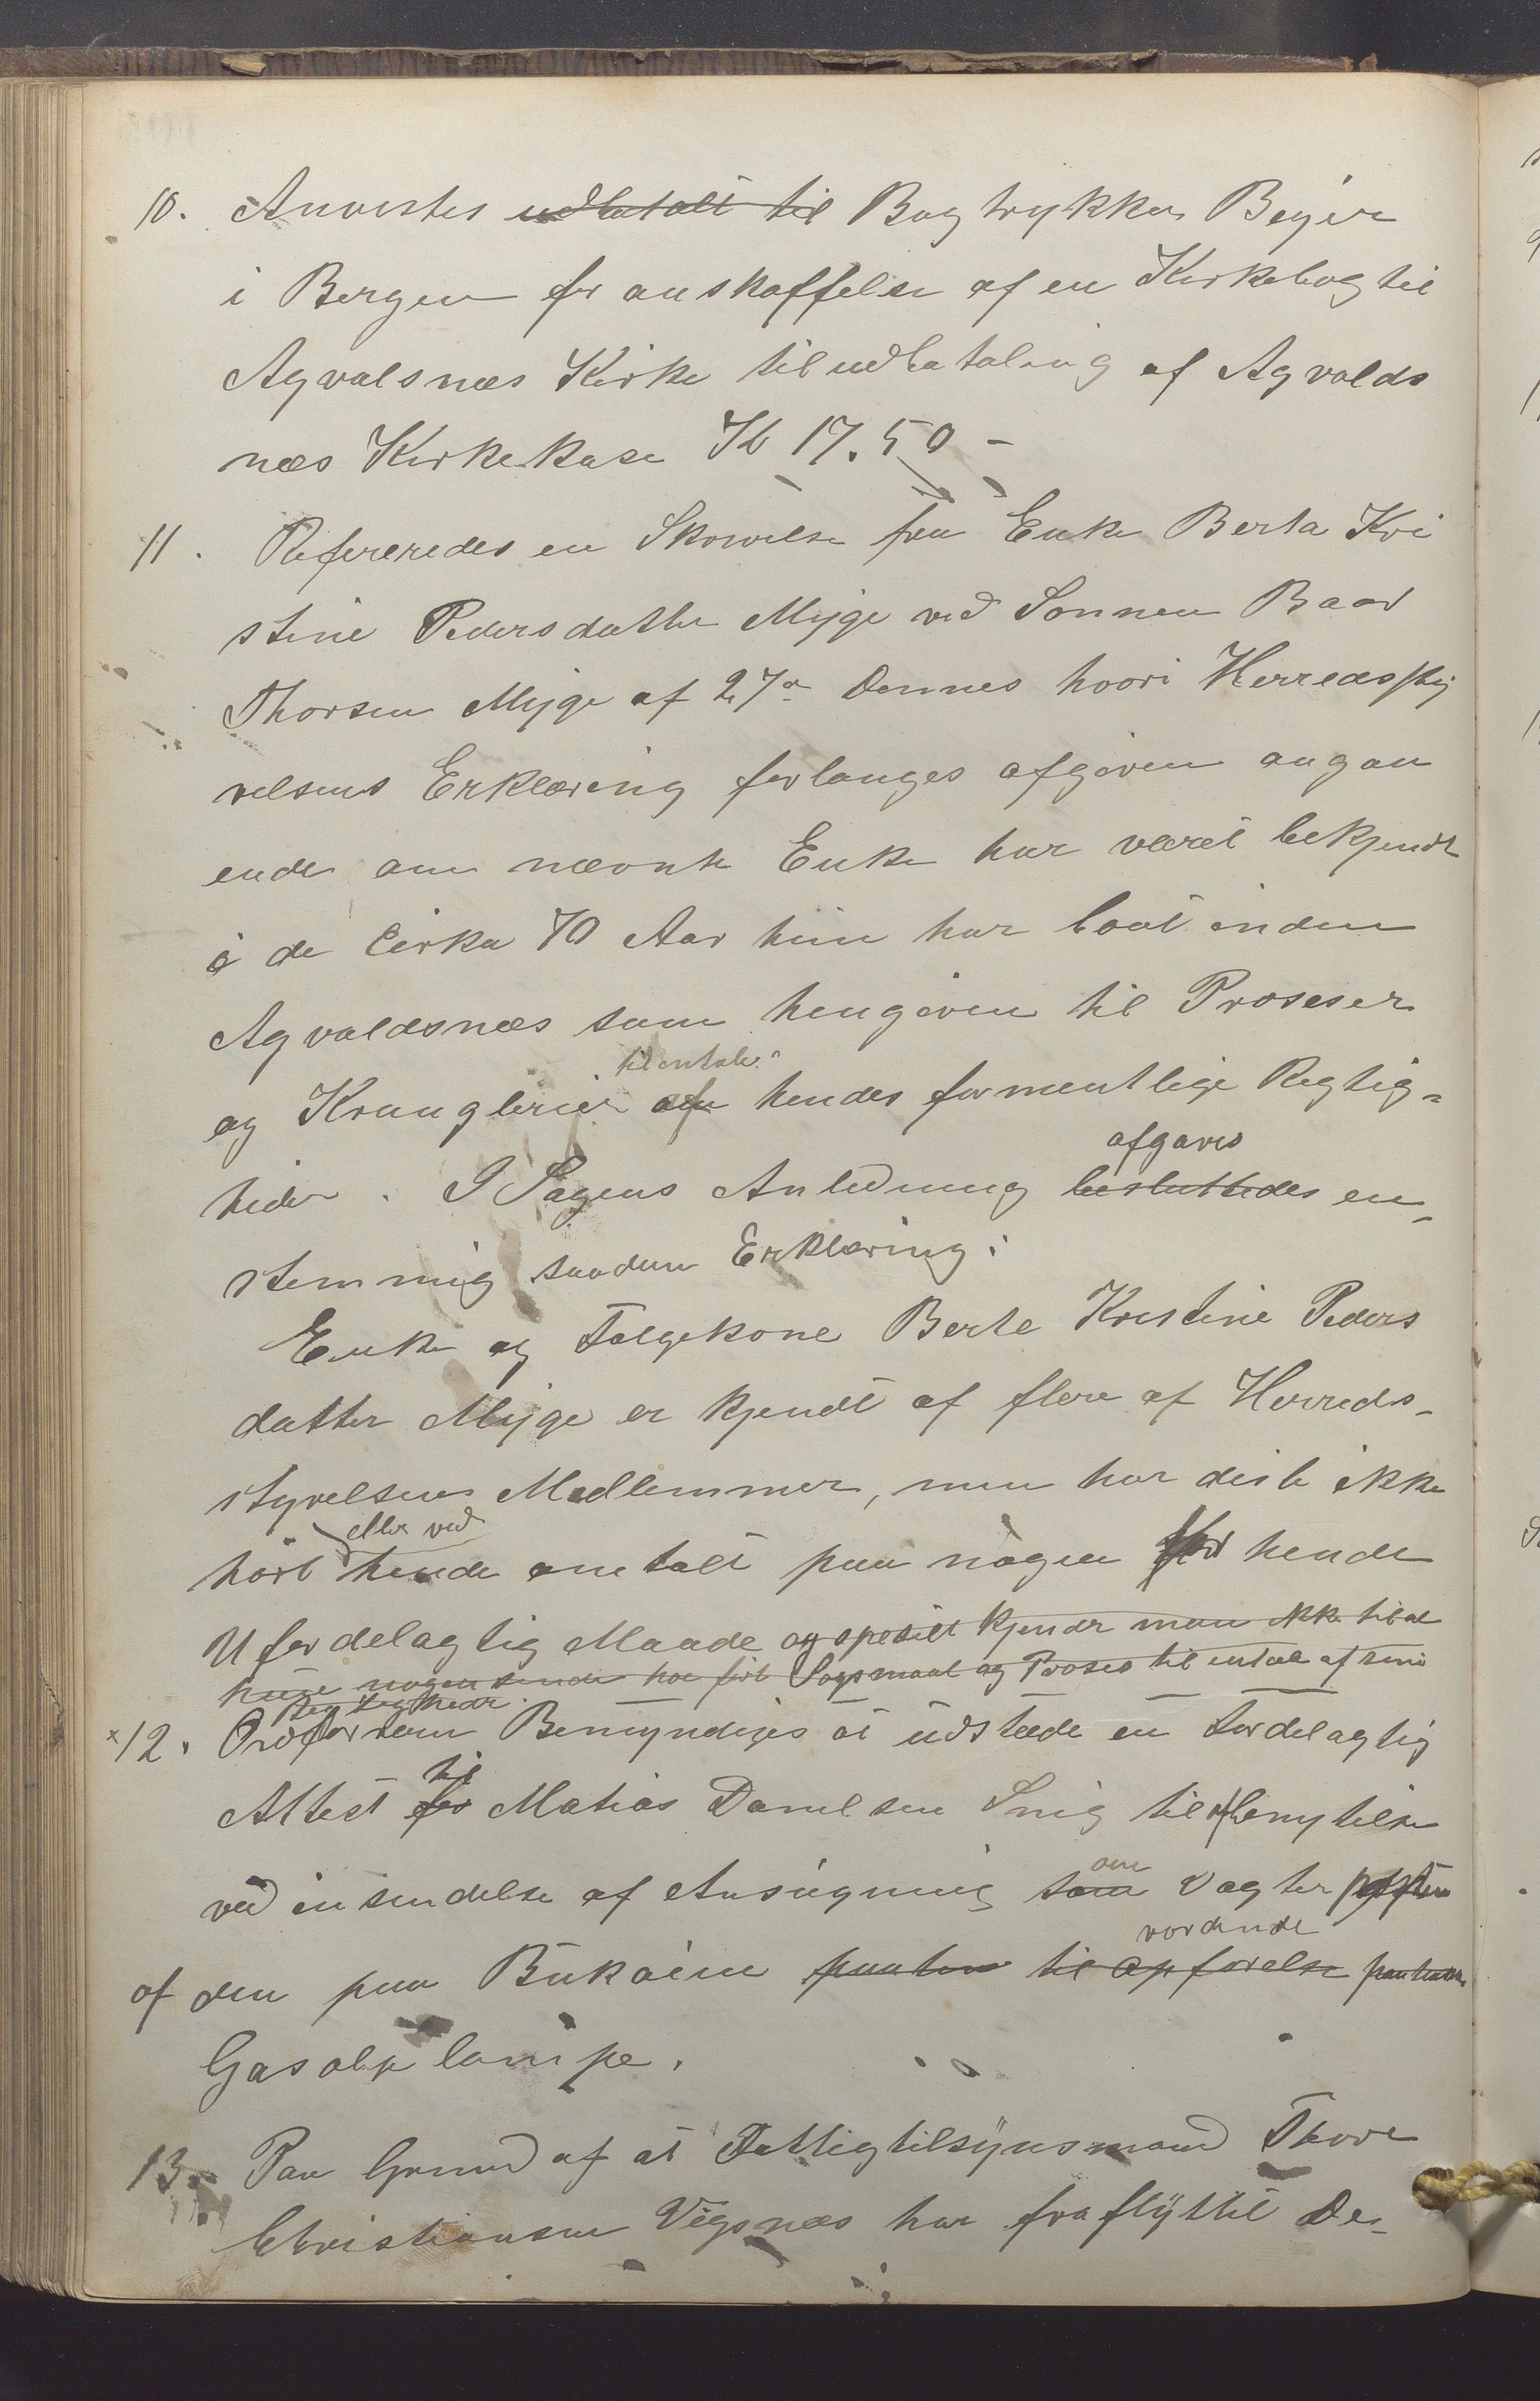 10. Anvistes udbetalt til Bogtrykker Beyer
i Bergen for anskaffelse af en Kirkebog til
Agvalsnæs Kirke til udbetaling af Agvalds
næs Kirkekase Kr 17.50 -
11. Refereredes en Skrivelse fra Enke Berta Kri
stine Pedersdatter Myge ved Sønnen Baar
Thorsen Myge af 27de Dennes hvori Herredssty
velsens Erklæring forlanges afgiven angaa
ende om nævnte Enke har været bekjendt
i de Cirka 70 Aar hun har boet inden
Agvaldsnæs som hengiven til Proseser
til ental
og Kranglerier af hendes formentlige Regtig-
afgaves
heder. I Sagens Anledning besluttedes en-
stemmig saadan Erklæring:
Enke og Følgekone Berte Kristine Peders
datter Myge er kjendt af flere af Herreds-
styrelsens Medlemmer, men har diste ikke
eller ved
hørt hende omtalt paa nogen for hende
Ufordelagtig Maade og spesielt kjender man ikke til at
hun nogensinde har ført Sagsmaal og Proses til ental af sine
Regtigheder.
12. Ordføreren Bemyndiges at udstæde en Fordelagtig
til
Attest for Matias Danelsen Snig til benytelse
om
ved insendelse af Ansøgning som Vagter
vordende
af den paa Bukøien til Opførelse
Gasolje lampe.
13. Paa Grund af at Fattigtilsynsmand Thore
Christiansen Vigsnæs har fraflyttet De-